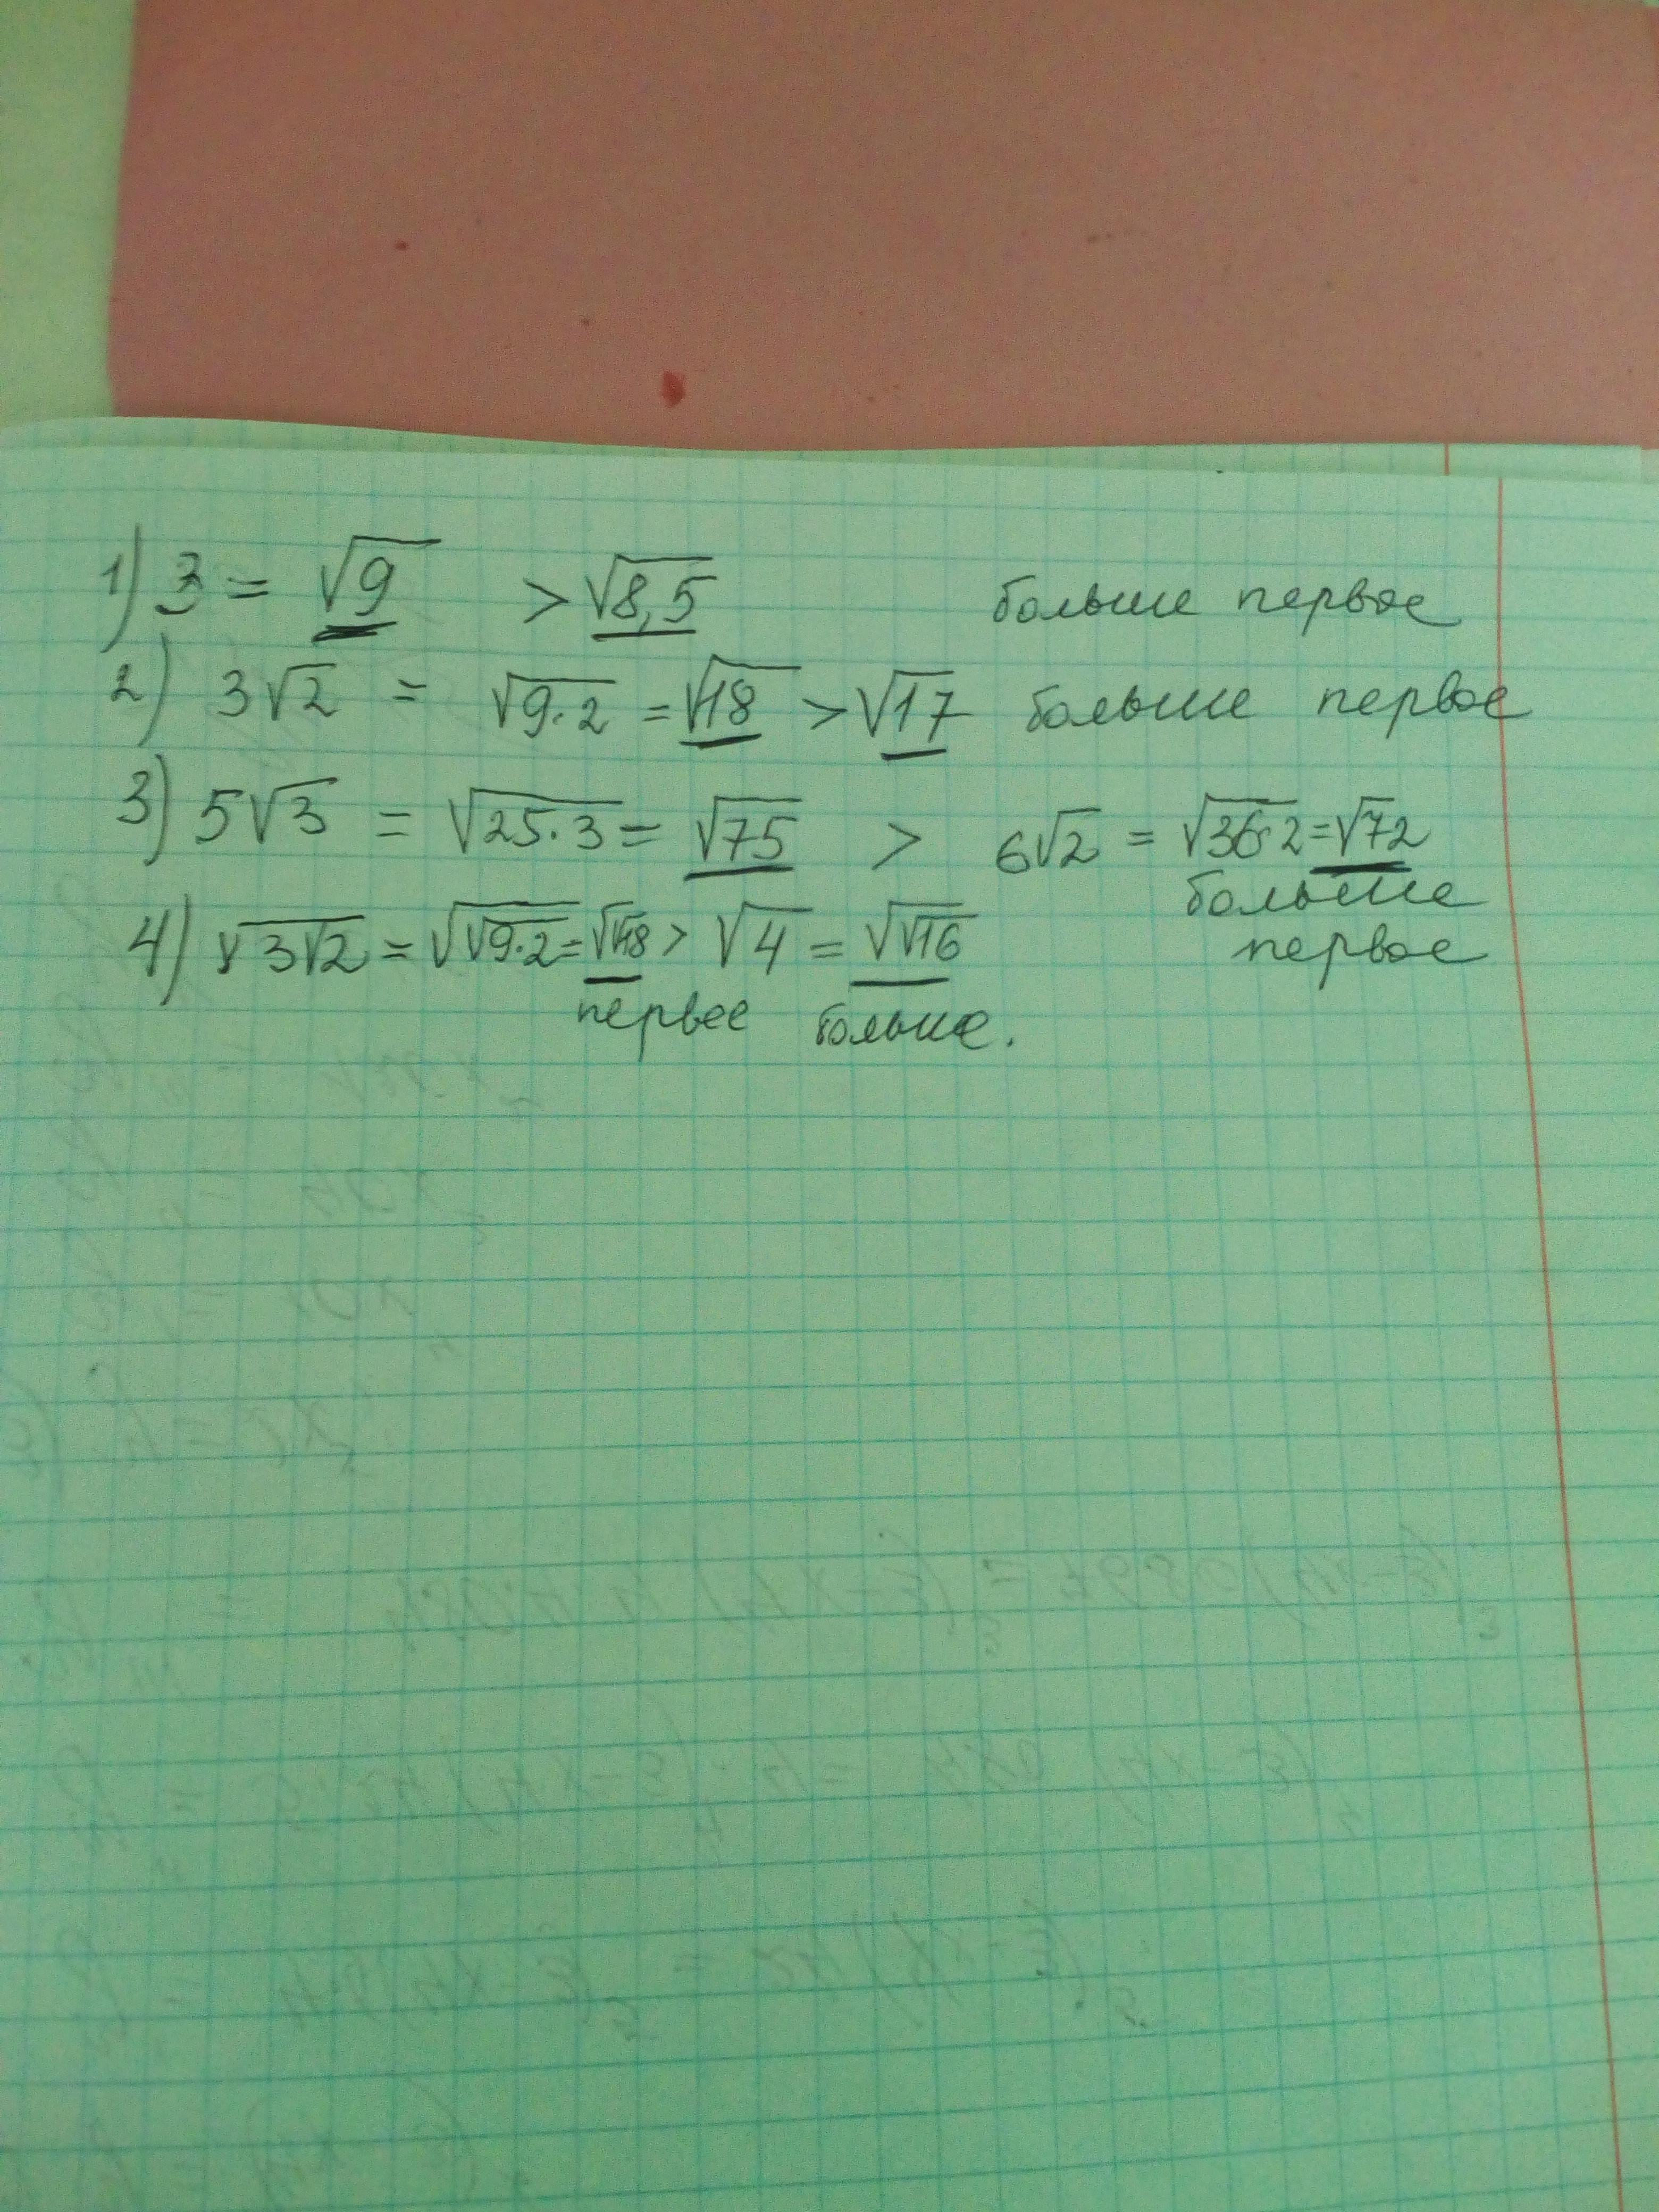 1) 3 = √9 > √8,5 больше первое
2) 3√2 = √9·2 = √18 > √17 больше первое
3) 5√3 = √25·3 = √75 > 6√2 = √36·2 = √72
больше
первое
4) √3√2 = √√9·2 = √√18 > √4 = √√16
первое больше.